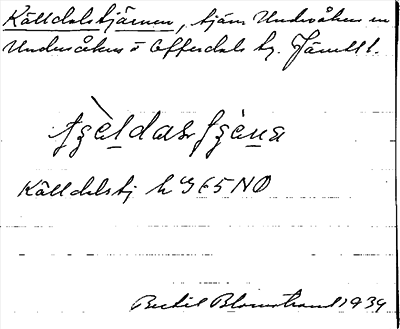 Källdalstjärnen, tjärn Undersåkers sn
Undersåkers o Offerdals hg. Jämtl l.
Källdalstj k Y65NO
Bertil Blomstrand 1939